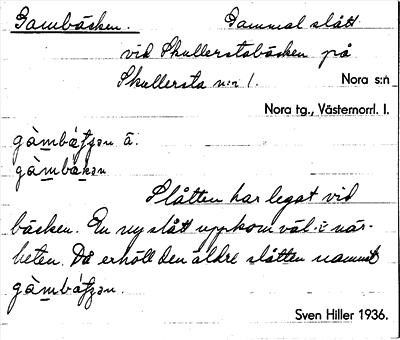 Gambäcken. Gammal slått
vid Skullerstabäcken på
Skullersta n:r 1. Nora s:n
Nora tg., Västernorrl. l.
gàmbä́ƭʒən ä.
gàmbä́kən
Slåtten har legat vid
bäcken. En ny slått uppkom väl i när-
heten. Då erhöll den äldre slåtten namnet
gàmbä́ƭʒən.
Sven Hiller 1936.